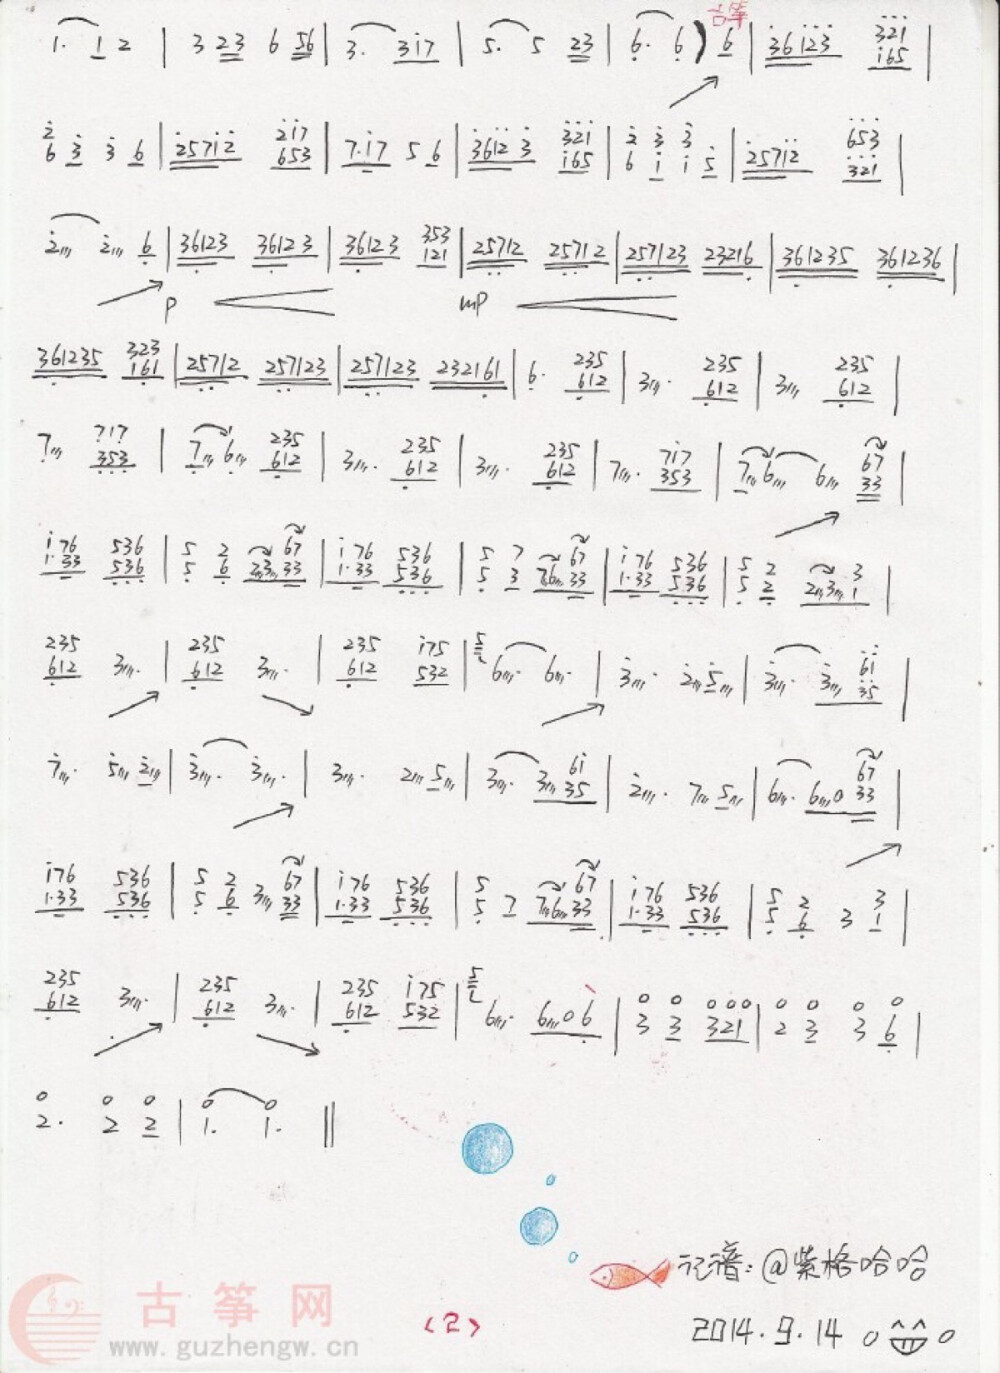 古筝
1. 1 2 | 3 23 6 56 | 3. 317 | 5. 5 23 | 6. 6 ) 6 | 36123 321
165
2 3 3 6 | 25712 217 | 7.17 5 6 | 36123 321 | 2 3 3 | 25712 653
6 653 165 6 1 1 5 321
2 2 6 | 36123 36123 | 36123 353 | 25712 25712 | 257123 23216 | 361235 361236 |
121
p mp
361235 323 | 25712 257123 | 257123 232161 | 6. 235 | 3 . 235 | 3 235 |
161 612 612 612
7 717 | 7 6 235 | 3 . 235 | 3 . 235 | 7 . 717 | 7 6 6 67 |
353 612 612 612 353 33
176 536 | 5 2 67 | 176 536 | 5 7 67 | 176 536 | 5 2 3 |
1.33 536 5 6 23 33 1.33 536 5 3 76 33 1.33 536 5 2 2 3 1
235 3 . | 235 3 . | 235 175 | 5 6 . 6 . | 3 . 2 5 | 3 . 3 61 |
612 612 612 532 35
7 . 5 2 | 3 . 3 . | 3 . 2 5 | 3 . 3 61 | 2 . 7 5 | 6 . 6 0 67 |
35 33
176 536 | 5 2 67 | 176 536 | 5 67 | 176 536 | 5 2 3 |
1.33 536 5 6 3 33 1.33 536 5 7 76 33 1.33 536 5 6 3 1
235 3 . | 235 3 . | 235 175 | 5 6 . 6 0 6 | 0 0 000 | 0 0 0 0 |
612 612 612 532 3 3 321 2 3 3 6
0 0 0 | 0 0 ||
2. 2 2 1. 1.
记谱:@紫格哈哈
<2>
2014.9.14
古筝网
www.guzhengw.cn